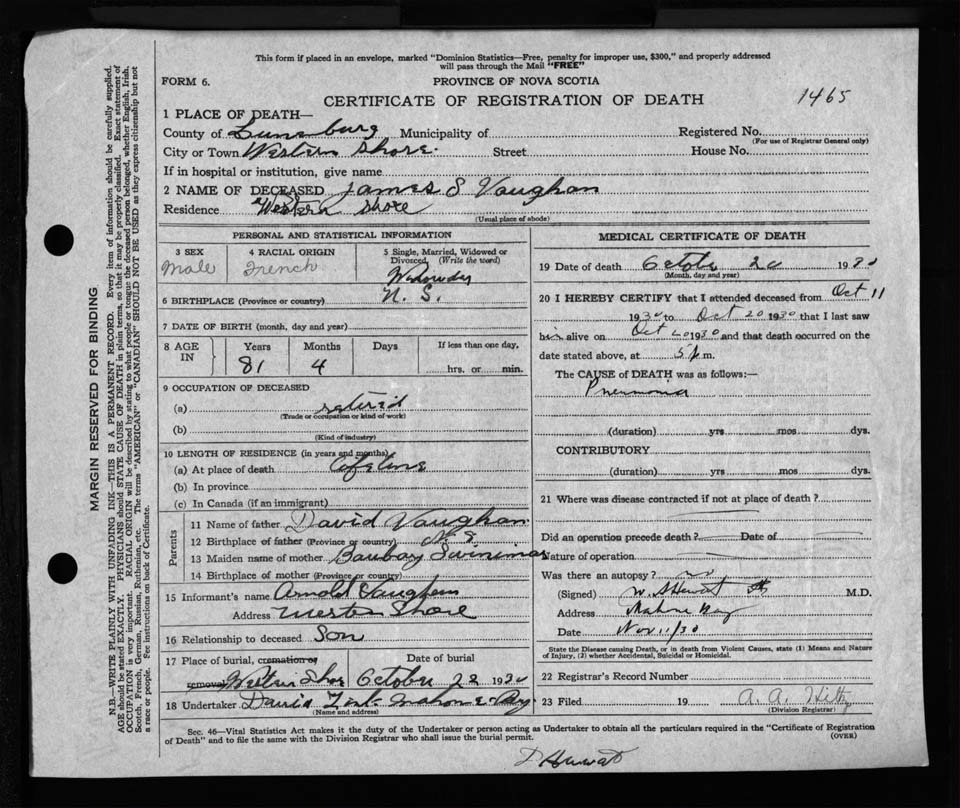 This form if placed in an envelope, marked "Dominion Statistics—Free, penalty for improper use, $300," and properly addressed
will pass through the Mail "FREE"
FORM 6. PROVINCE OF NOVA SCOTIA
CERTIFICATE OF REGISTRATION OF DEATH 1465
1 PLACE OF DEATH—
County of Lunenburg Municipality of Registered No.
(For use of Registrar General only)
City or Town Western Shore. Street House No.
If in hospital or institution, give name
2 NAME OF DECEASED James S Vaughan
Residence Western Shore
(Usual place of abode)
PERSONAL AND STATISTICAL INFORMATION
3 SEX 4 RACIAL ORIGIN 5 Single, Married, Widowed or
Divorced (Write the word)
Male French
N. S.
6 BIRTHPLACE (Province or country)
7 DATE OF BIRTH (month, day and year)
8 AGE IN Years Months Days If less than one day,
81 4 hrs. or min.
9 OCCUPATION OF DECEASED
(a) retired
(Trade or occupation or kind of work)
(b)
(Kind of industry)
10 LENGTH OF RESIDENCE (in years and months)
(a) At place of death lifetime
(b) In province
(c) In Canada (if an immigrant)
Parents
11 Name of father David Vaughan
12 Birthplace of father (Province or country) N. S.
13 Maiden name of mother
14 Birthplace of mother (Province or country)
15 Informant's name Arnold Vaughan
Address Western Shore
16 Relationship to deceased Son
17 Place of burial, cremation or Date of burial
removal Western Shore October 22 1930
18 Undertaker David Zink Mahone Bay
(Name and address)
MEDICAL CERTIFICATE OF DEATH
19 Date of death October 20 1930
(Month, day and year)
20 I HEREBY CERTIFY that I attended deceased from Oct 11
1930 to Oct 20 1930 that I last saw
him alive on Oct 20 1930 and that death occurred on the
date stated above, at 5 p m.
The CAUSE of DEATH was as follows:—
Pneumonia
(duration) yrs mos dys.
CONTRIBUTORY
(duration) yrs mos dys.
21 Where was disease contracted if not at place of death ?
Did an operation precede death ? Date of
Nature of operation
Was there an autopsy ? no
(Signed) M.D.
Address Mahone Bay
Date Nov 11/30
State the Disease causing Death, or in death from Violent Causes, state (1) Means and Nature
of Injury, (2) whether Accidental, Suicidal or Homicidal.
22 Registrar's Record Number
23 Filed 19 A. A. Hiltz
(Division Registrar)
Sec. 46—Vital Statistics Act makes it the duty of the Undertaker or person acting as Undertaker to obtain all the particulars required in the "Certificate of Registration
of Death" and to file the same with the Division Registrar who shall issue the burial permit. (OVER)
MARGIN RESERVED FOR BINDING
N.B.—WRITE PLAINLY WITH UNFADING INK—THIS IS A PERMANENT RECORD. Every item of information should be carefully supplied.
AGE should be stated EXACTLY. PHYSICIANS should STATE CAUSE OF DEATH in plain terms, so that it may be properly classified. Exact statement of
OCCUPATION is very important. RACIAL ORIGIN will be described by stating to what people or tongue the deceased person belonged, whether English, Irish,
Scotch, French, German, Russian, Ruthenian, etc. The terms "AMERICAN" or "CANADIAN" SHOULD NOT BE USED as they express citizenship but not
a race or people. Fee instructions on back of Certificate.